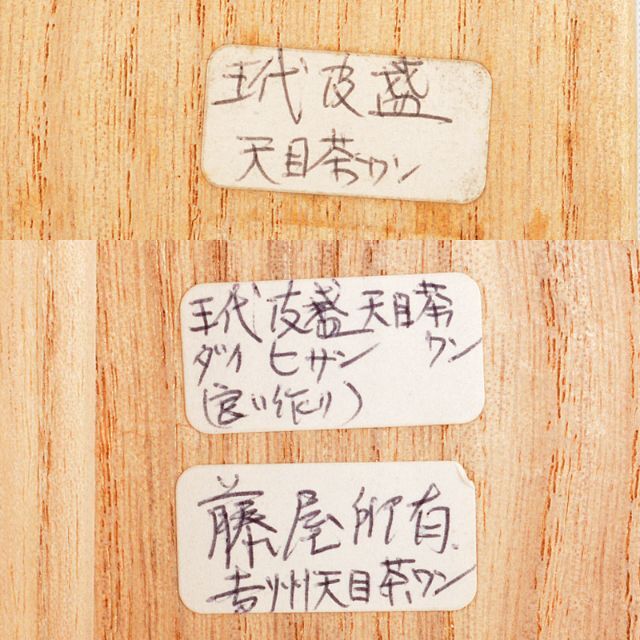 玳皮盞
天目茶ワン
玳皮盞天目茶
ダイ ヒ サン ワン
藤屋所有
吉州天目茶ワン